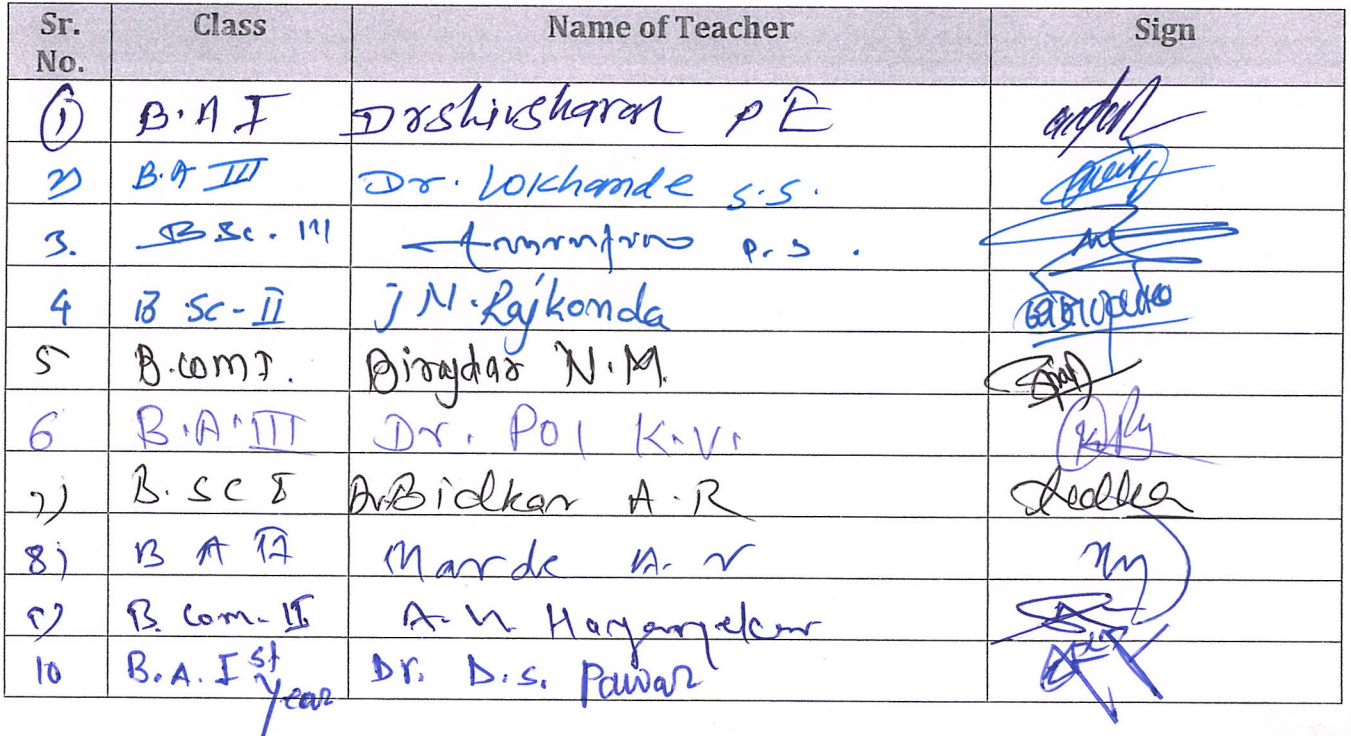 Sr. No. Class Name of Teacher Sign
1) B.A I Dr Shivsharan P E
2) B.A III Dr. Lokhande S.S.
3. B.Sc. III P.S.
4 B.Sc-II J N. Rajkonda
5 B.com I. Birajdar N.M.
6 B.A.III Dr. Pol K.V.
7) B.SC I Dr Bidkar A.R
8) B A II Marde A. V
9) B. Com.-II A. N.
10 B.A. I st year Dr. D.S. Pawar